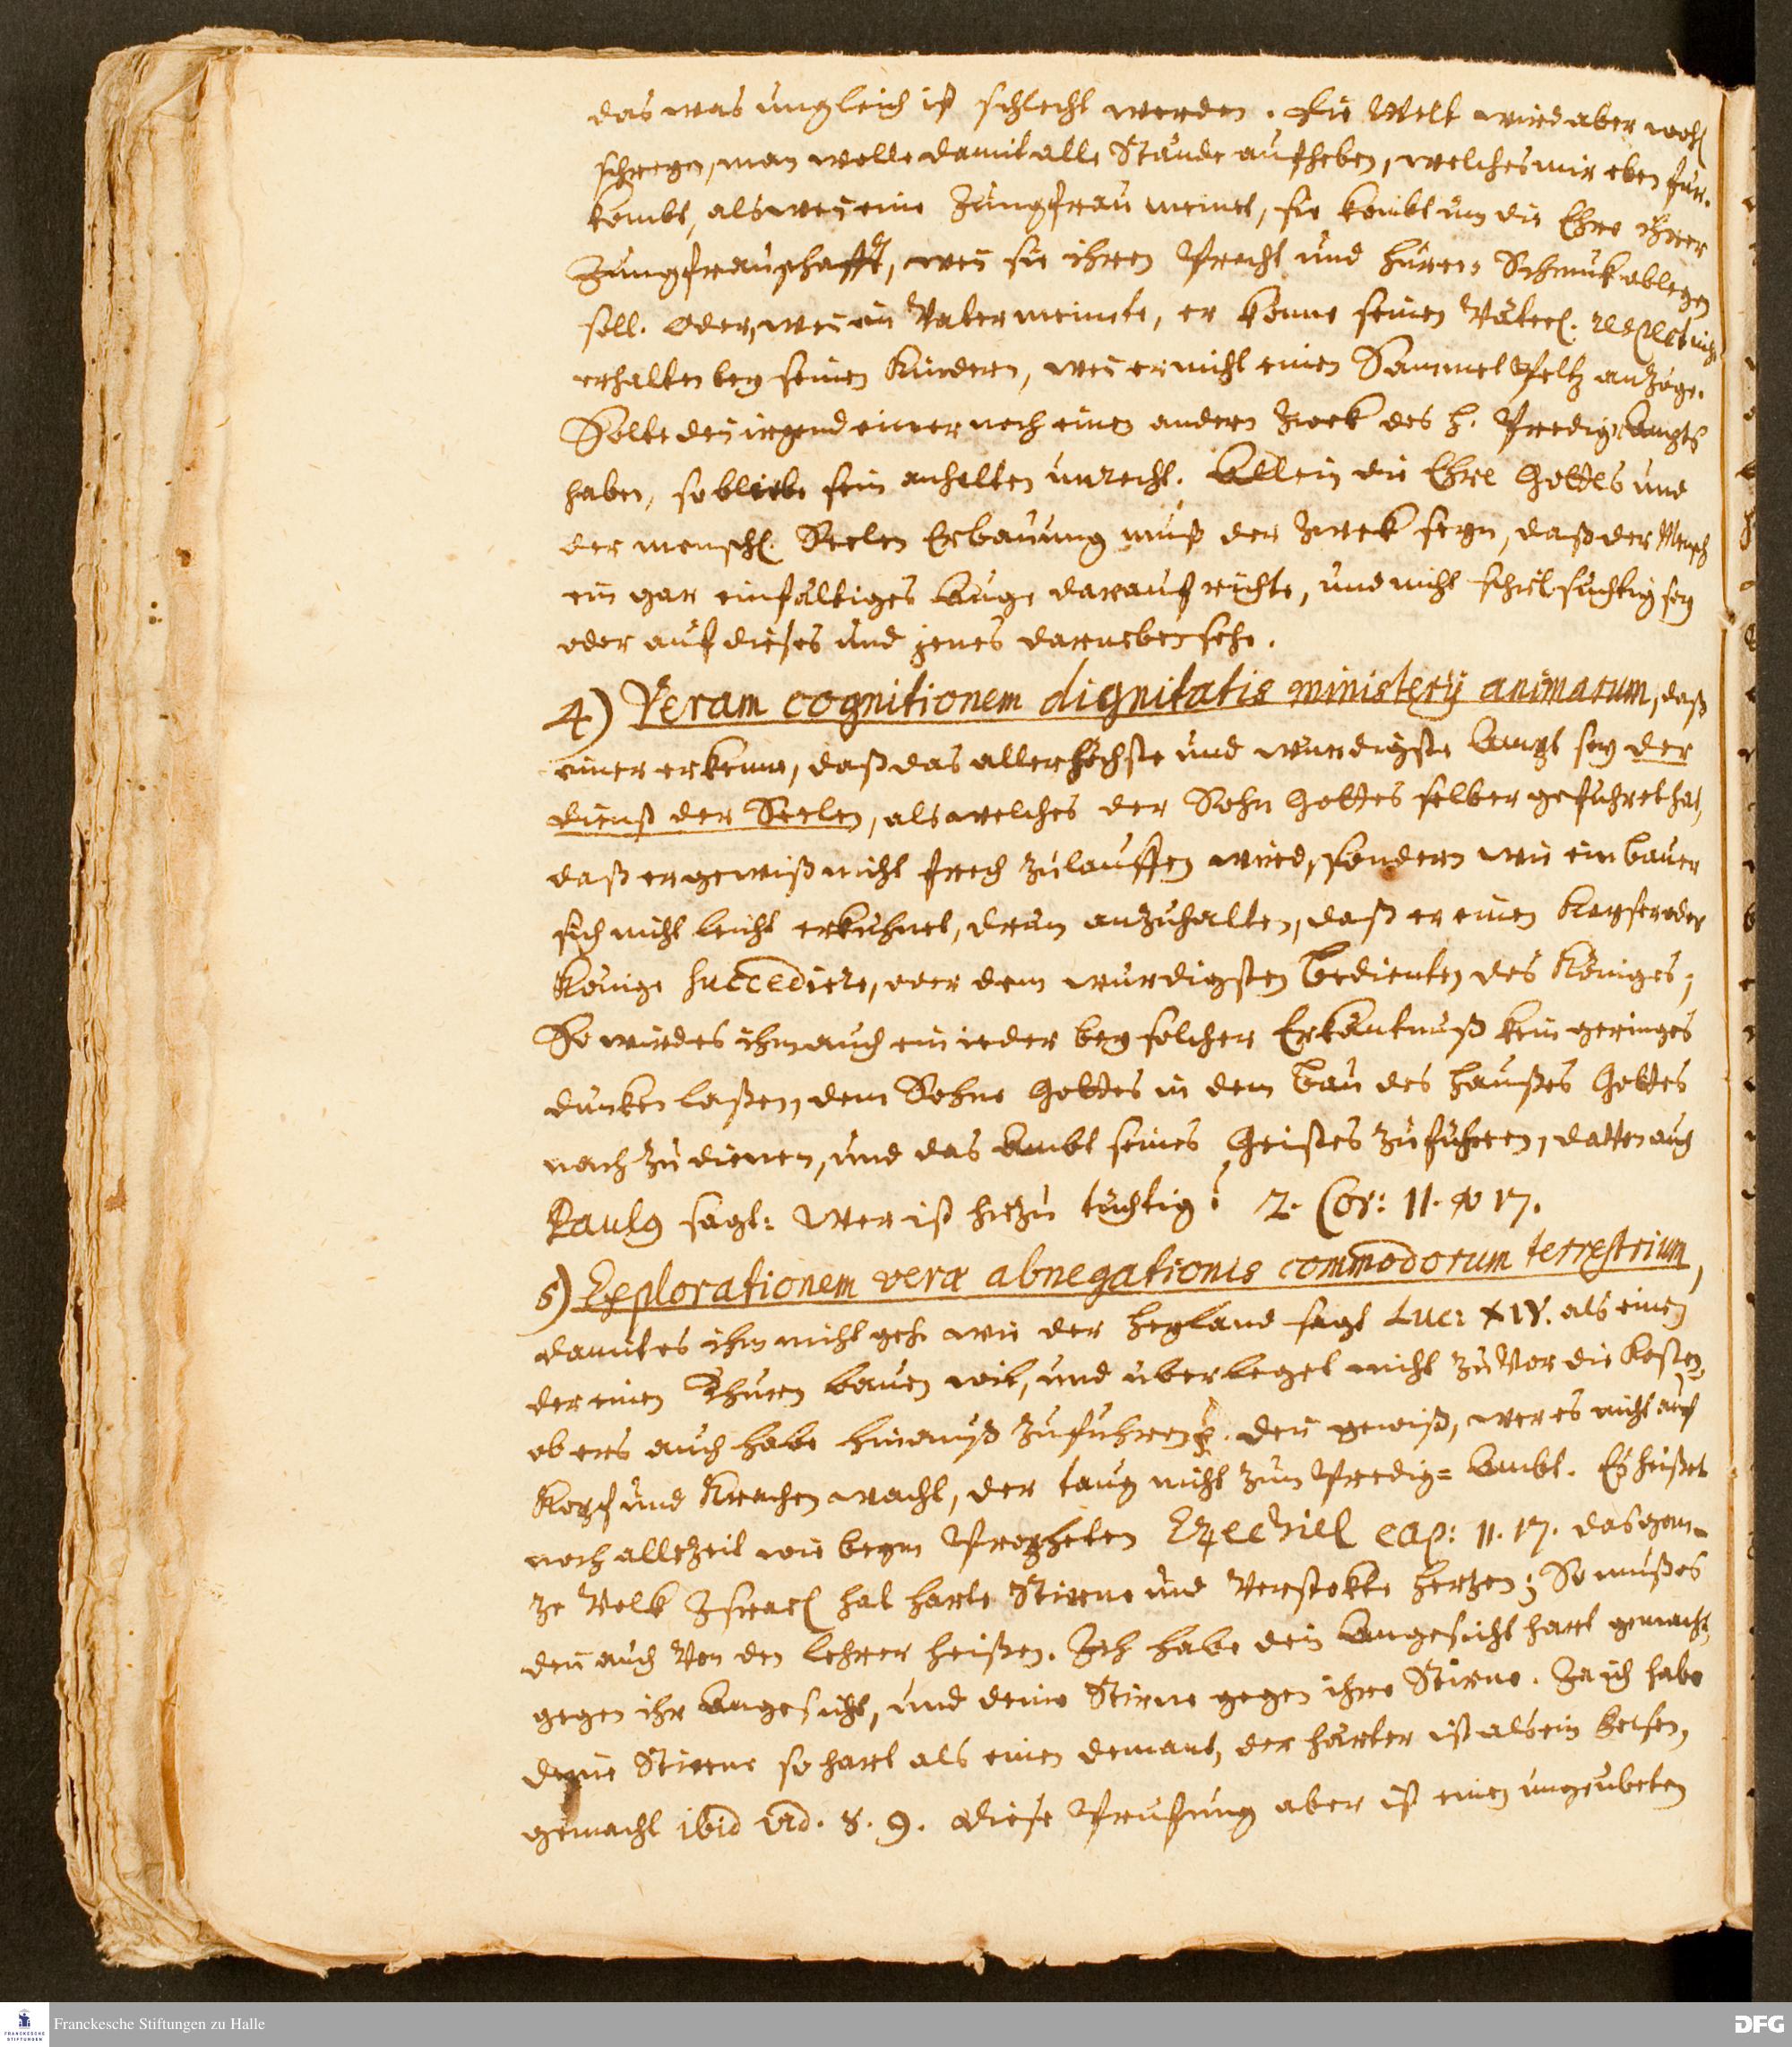 das was ungleich ist schlecht werden. Die Welt wird aber wohl
schreyen, man wolle damit alle Stände aufheben, welches mir eben für-
kombt, als wen̄ eine Jungfrau meinet, sie kombt üm die Ehre ihrer
Jungfrauschafft, wen̄ sie ihren Pracht und huren-Schmuk ablegen
soll. Oder, wen̄ ein Vater meinete, er könne seinen Väterl. respect nicht
erhalten bey seinen Kindern, wen̄ er nicht einen Sammet Peltz anzöge.
Solte den̄ irgend einer noch einen andern Zwek des h. Predig-Ampts
haben, so bliebe sein anhalten unrecht. Allein die Ehre Gottes und
der menschl. Seelen Erbauung muß der Zwek seyn, daß der Mensch
ein gar einfältiges Auge darauf richte, und nicht schielsüchtig sey
oder auf dieses und jenes darneben sehe.
4) Veram cognitionem dignitatis ministerij animarum, daß
einer erkenne, daß das allerhöchste und würdigste Ampt sey der
dienst der Seelen, als welches der Sohn Gottes selber geführet hat,
daß er gewiß nicht frech zulauffen wird, sondern wie ein bauer
sich nicht leicht erkühnet, drum anzuhalten, daß er einen Kayser oder
Könige succediere, oder dem würdigsten bedienten des Königes;
So wird es ihm auch ein ieder bey solcher Erkäntnuß kein geringes
dünken laßen, dem Sohne Gottes in dem bau des haußes Gottes
nach zu dienen, und das Ambt seines Geistes zu führen, davon auch
Paulus sagt: Wer ist hiezu tüchtig? 2. Cor: 11. v 17.
5) Explorationem veræ abnegationis commodorum terrestrium,
damit es ihm nicht gehe wie der heyland sagt Luc: XIV. als einen
der einen Thurn bauen wil, und überleget nicht zuvor die Kosten,
ob ers auch habe hinauß zuführen p. den̄ gewiß, wer es nicht auf
Kopf und Krachen wagt, der taug nicht zum Predig-Ambt. Es heißet
noch allezeit wie beym Propheten Ezechiel cap: 11. 17. das gan-
ze Volk Israel hat harte Stirne und verstokte hertzen; So muß es
den̄ auch von den lehrer heißen. Ich habe dein Angesicht hart gemacht,
gegen ihr Angesicht, und deine Stirne gegen ihre Stirne. Ja ich habe
deine Stirne so hart als einen demant, der härter ist als ein felsen,
gemacht ibid vd. 8. 9. Diese Prüfung aber ist einen ungeübeten
Franckesche Stiftungen zu Halle
DFG